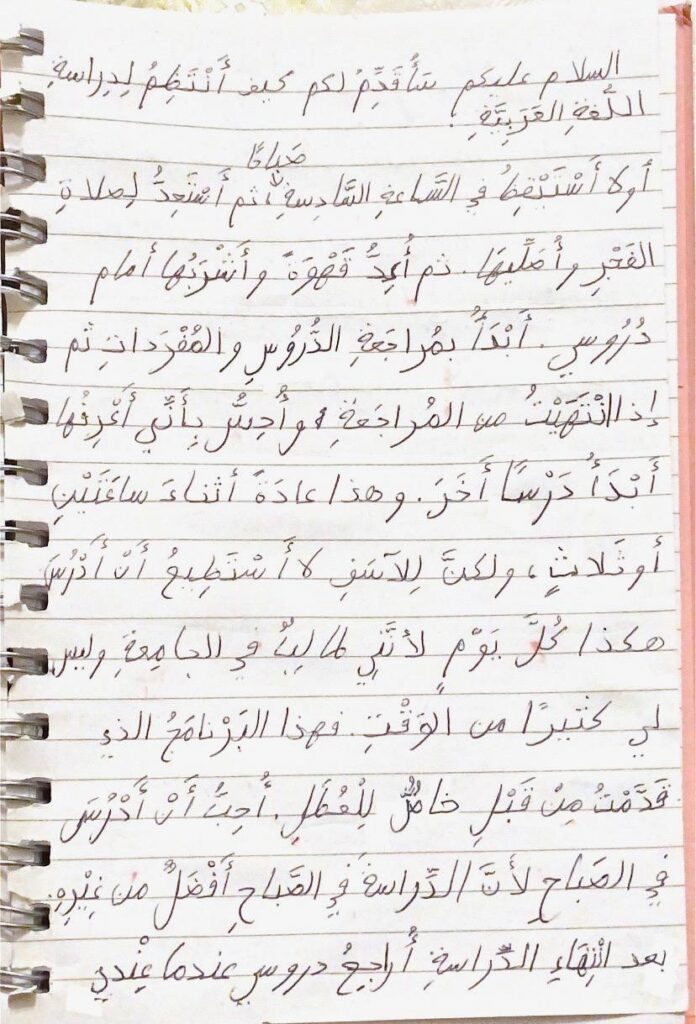 السلام عليكم سَأُقَدِّمُ لكم كيف أَنْتَظِمُ لِدِراسةِ
اللُّغةِ العَرَبِيَّةِ.
صَباحًا
أولا أَسْتَيْقِظُ في السَّاعةِ السَّادِسةِ، ثم أَسْتَعِدُّ لِصلاةِ
الفَجْرِ وأُصَلِّيهَا. ثم أُعِدُّ قَهْوَةً وأَشْرَبُها أمام
دُرُوسي. أَبْدَأُ بمُراجَعةِ الدُّرُوسِ والمُفْرَداتِ ثم
إذا انْتَهَيْتُ من المُراجَعةِ وأُحِسُّ بِأَنِّي أَعْرِفُها
أَبْدَأُ دَرْسًا أَخَرَ. وهذا عادَةً أثناءَ ساعَتَيْنِ
أو ثَلاثٍ، ولكنَّ لِلآسَفِ لا أَسْتَطِيعُ أَنْ أَدْرُسَ
هكذا كُلَّ يَوْمٍ لأنَّنِي طالِبٌ في الجامِعةِ وليس
لي كثيرًا من الوَقْتِ. فهذا البَرْنامَجُ الذي
قَدَّمْتُ مِنْ قَبْلِ خاصٌّ لِلْعُطَلِ. أُحِبُّ أَنْ أَدْرُسَ
في الصَباحِ لأَنَّ الدِّراسةَ في الصَّباحِ أَفْضَلُ من غِيْرِهِ.
بعد انْتِهَاءِ الدِّراسةِ أُراجِعُ دروسي عندما عِنْدي